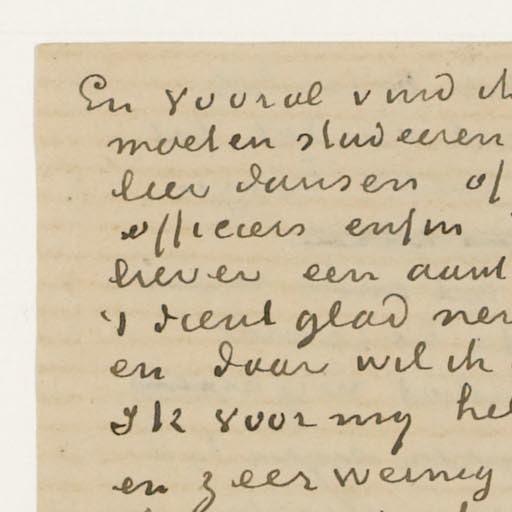 En vooral vind ik
moeten studeeren
leer dansen of
officiers enfin
liever een aant
't dient glad ner
en daar wil ik
Ik voor my heb
en zeer weinig